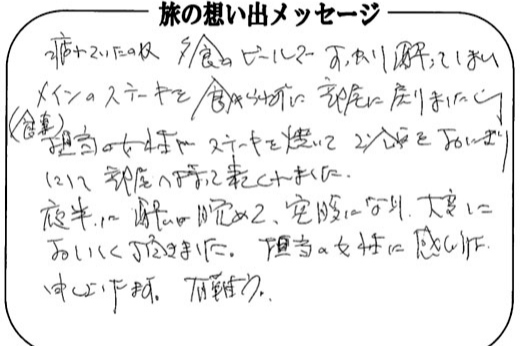 旅の想い出メッセージ
疲れていたの故 夕食のビールで すっかり酔ってしまい
メインのステーキを食べる前に部屋に戻りましたら
(食事)
担当の女性が ステーキを焼いて ご飯をおにぎり
にして 部屋へ持って来てくれました。
夜半に酔いは目覚めて、空腹になり、大変に
おいしく頂きました。 担当の女性に感謝
申し上げます。 有難う。